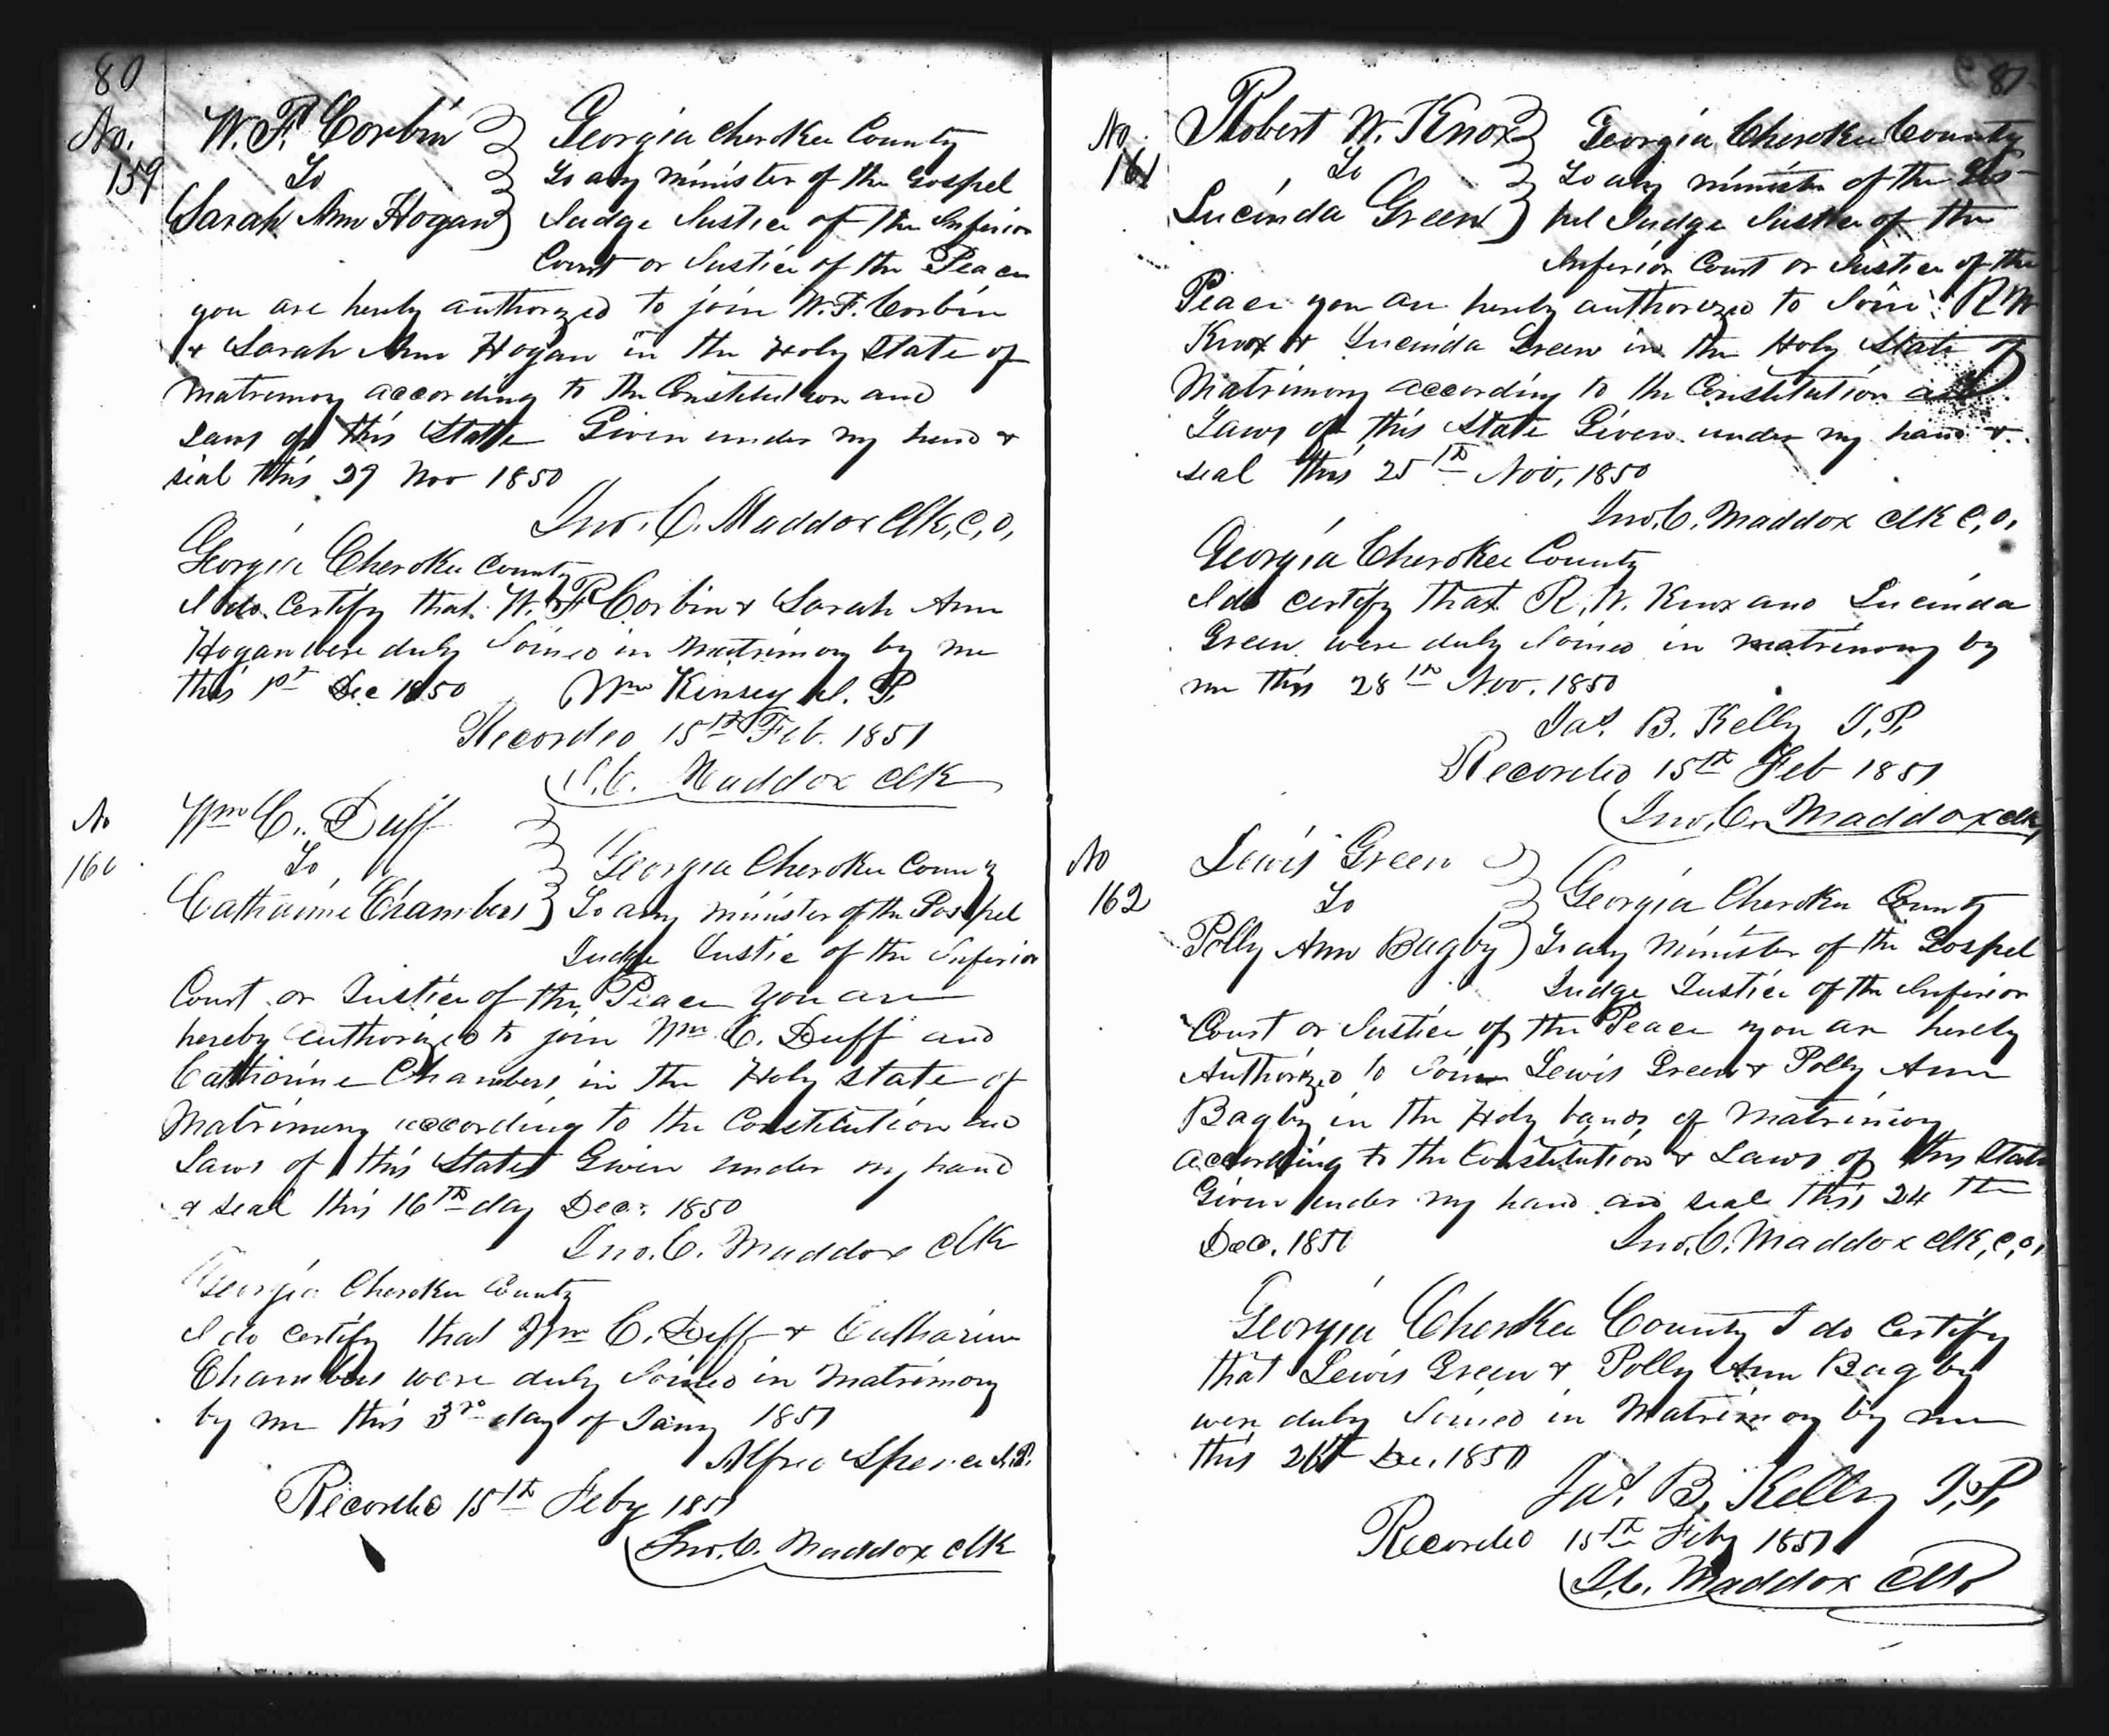 80
No. 159
W. F. Corbin
To
Sarah Ann Hogan
Georgia Cherokee County
To any minister of the Gospel
Judge Justice of the Inferior
Court or Justice of the Peace
you are hereby authorized to join W. F. Corbin
& Sarah Ann Hogan in the Holy State of
Matrimony according to the Constitution and
Laws of this State Given under my hand &
seal this 29 Nov 1850
Jno. C. Maddox Clk, C, O,
Georgia Cherokee County
I do Certify that W. F. Corbin & Sarah Ann
Hogan were duly Joined in Matrimony by me
this 1st Dec 1850 Wm Kinsey J. P.
Recorded 15th Feb. 1851
J. C. Maddox Clk
No 160
Wm C. Duff
To
Catharine Chambers
Georgia Cherokee County
To any minister of the Gospel
Judge Justice of the Inferior
Court or Justice of the Peace You are
hereby authorized to join Wm C. Duff and
Catharine Chambers in the Holy state of
Matrimony according to the Constitution and
Laws of this State Given under my hand
& seal this 16th day Decr. 1850
Jno. C. Maddox Clk
Georgia Cherokee County
I do Certify that Wm C. Duff & Catharine
Chambers were duly Joined in Matrimony
by me this 3rd day of Jany 1851
Alfred J.P.
Recorded 15th Feby 1851
Jno. C. Maddox Clk
81
No. 161
Robert W. Knox
To
Lucinda Green
Georgia Cherokee County
To any minister of the Gos-
pel Judge Justice of the
Inferior Court or Justice of the
Peace you are hereby authorized to Join R W
Knox & Lucinda Green in the Holy State of
Matrimony according to the Constitution and
Laws of this State Given under my hand &
seal this 25th Nov, 1850
Jno. C. Maddox Clk C, O,
Georgia Cherokee County
I do certify that R. W. Knox and Lucinda
Green were duly Joined in matrimony by
me this 28th Nov. 1850
Jas. B. Kelly J. P.
Recorded 15th Feb 1851
Jno. C. Maddox Clk
No 162
Lewis Green
To
Polly Ann Bagby
Georgia Cherokee County
To any Minister of the Gospel
Judge Justice of the Inferior
Court or Justice of the Peace you are hereby
Authorized to Join Lewis Green & Polly Ann
Bagby in the Holy bands of Matrimony
according to the Constitution & Laws of this State
Given under my hand and seal this 24th
Dec. 1850 Jno. C. Maddox Clk, C, O,
Georgia Cherokee County I do Certify
that Lewis Green & Polly Ann Bagby
were duly Joined in Matrimony by me
this Dec. 1850
Jas. B. Kelly J. P.
Recorded 15th Feby 1851
J. C. Maddox Clk